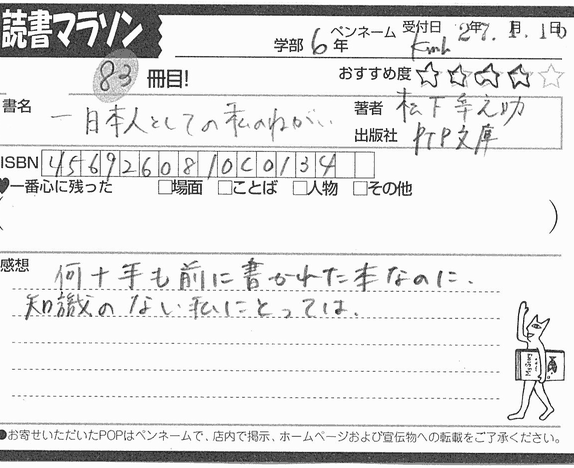 読書マラソン
学部 6年 ペンネーム 受付日 27.1.16日
83 冊目! おすすめ度 ☆☆☆☆☆
書名 一日本人としての私のねがい 著者 松下幸之助
出版社 PHP文庫
ISBN 4569260810C0134
♥一番心に残った □場面 □ことば □人物 □その他
( )
感想 何十年も前に書かれた本なのに、
知識のない私にとっては、
●お寄せいただいたPOPはペンネームで、店内で掲示、ホームページおよび宣伝物への転載をご了承ください。